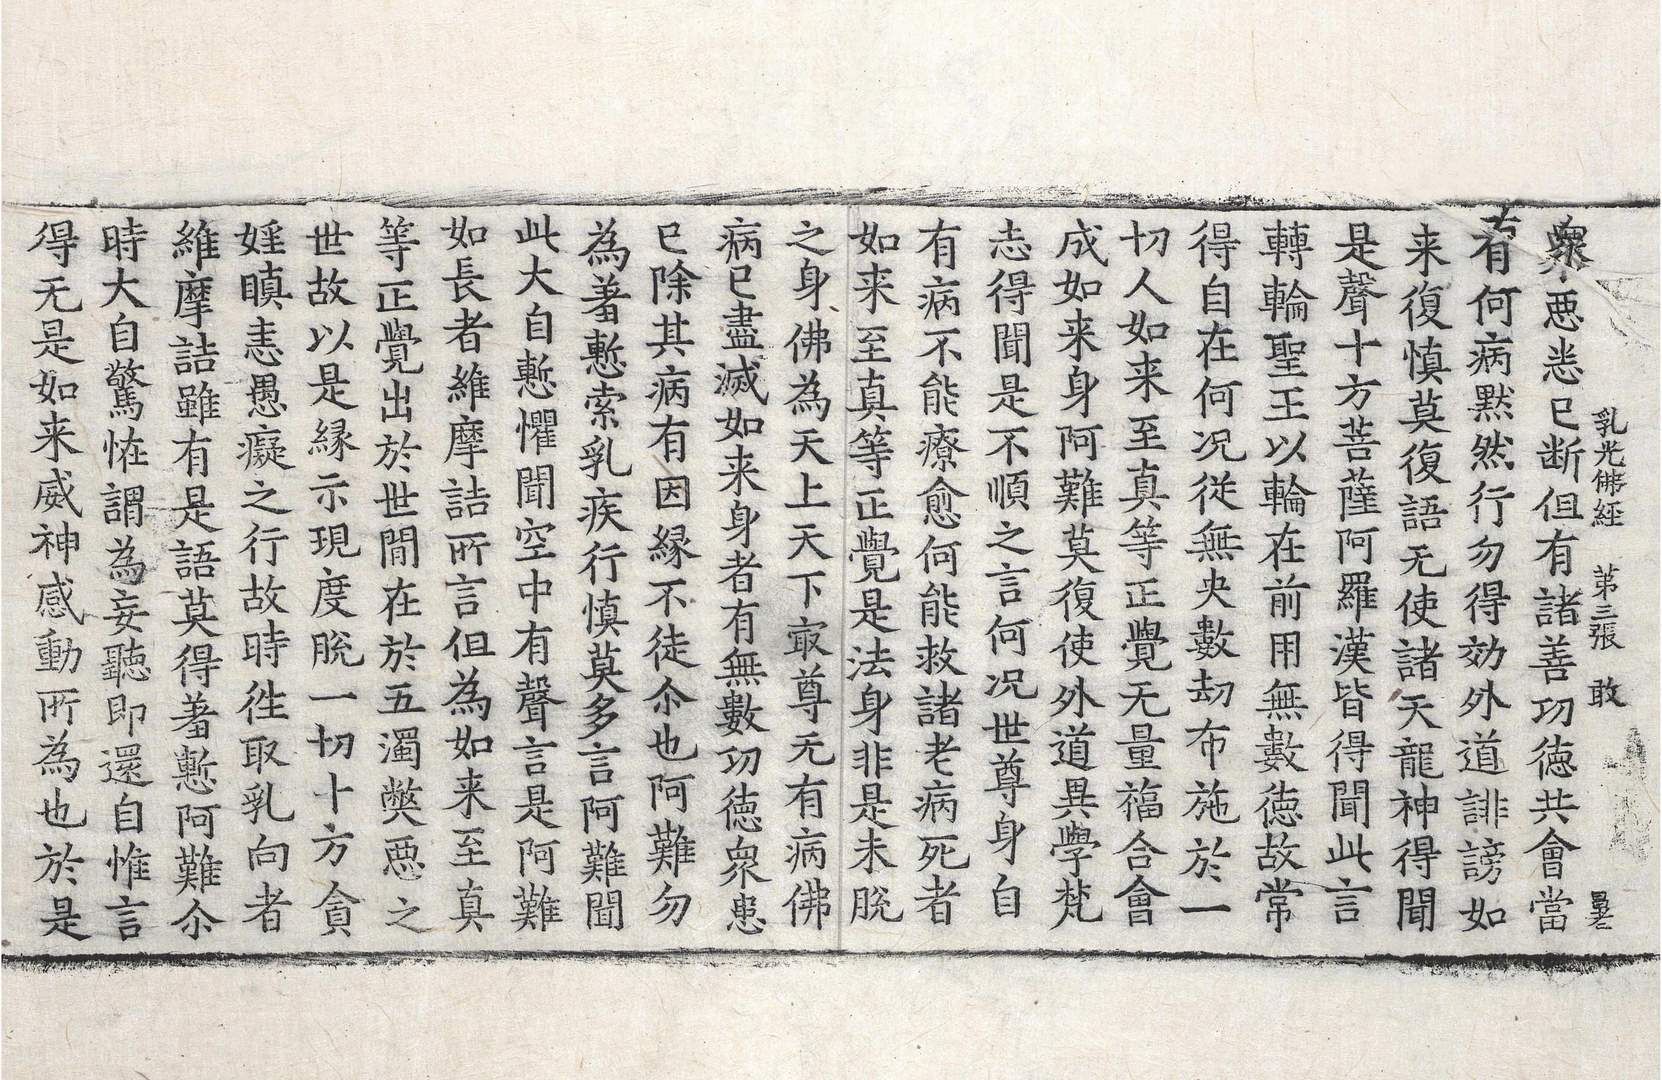 乳光佛經 第三張 敢
衆悪悉已断但有諸善功徳共會當
有何病黙然行勿得効外道誹謗如
来復慎莫復語无使諸天龍神得聞
是聲十方菩薩阿羅漢皆得聞此言
轉輪聖王以輪在前用無數徳故常
得自在何况従無央數劫布施於一
切人如来至真等正覺无量福合會
成如来身阿難莫復使外道異學梵
志得聞是不順之言何况世尊身自
有病不能療愈何能救諸老病死者
如来至真等正覺是法身非是未脫
之身佛為天上天下㝡尊无有病佛
病已盡滅如来身者有無數功徳衆患
已除其病有因縁不徒尒也阿難勿
為羞慙索乳疾行慎莫多言阿難聞
此大自慙懼聞空中有聲言是阿難
如長者維摩詰所言但為如来至真
等正覺出於世間在於五濁弊悪之
世故以是縁示現度脫一切十方貪
婬瞋恚愚癡之行故時徃取乳向者
維摩詰雖有是語莫得羞慙阿難尒
時大自驚恠謂為妄聽即還自惟言
得无是如来威神感動所為也於是